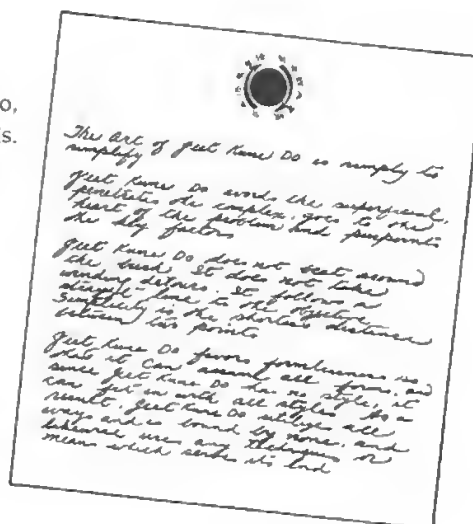 o,
s.
The art of Jeet Kune Do is simply to
simplify
Jeet Kune Do avoids the superficial,
penetrates the complex, goes to the
heart of the problem and pinpoints
the key factors
Jeet Kune Do does not beat around
the bush. It does not take
winding detours. It follows a
straight line to the objective.
Simplicity is the shortest distance
between two points
Jeet Kune Do favors formlessness so
that it can assume all forms, and
since Jeet Kune Do has no style, it
can fit in with all styles. As a
result, Jeet Kune Do utilizes all
ways and is bound by none, and
likewise uses any techniques or
means which serve its end